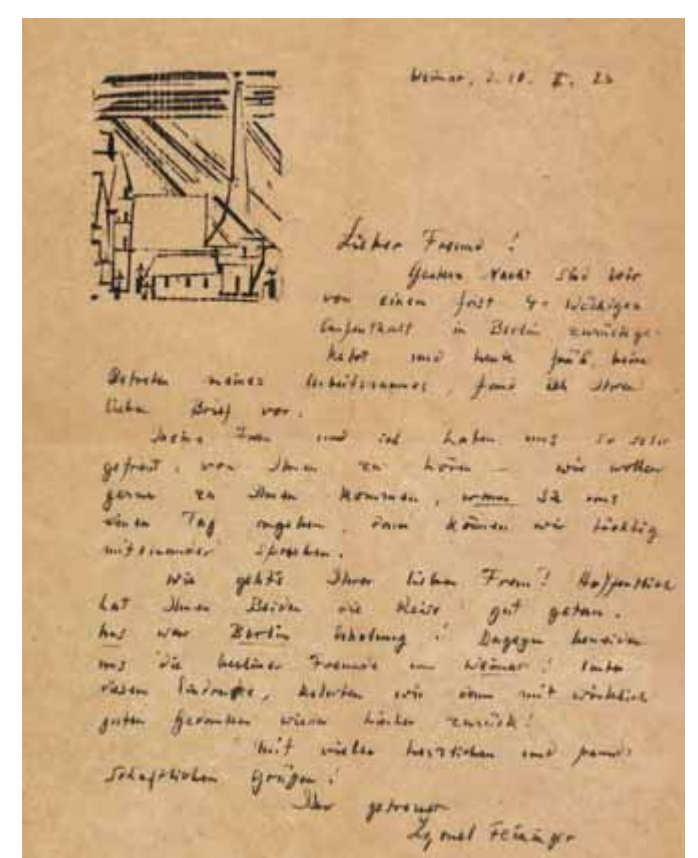 Weimar, d. 10. II. 23
Lieber Freund!
Gestern Nacht sind wir
von einem fast 4-wöchigen
Aufenthalt in Berlin zurückge-
kehrt und heute früh, beim
Betreten meines Arbeitsraumes, fand ich Ihren
lieben Brief vor.
Meine Frau und ich haben uns so sehr
gefreut, von Ihnen zu hören — wir wollen
gerne zu Ihnen kommen, wenn Sie uns
einen Tag angeben, dann können wir tüchtig
miteinander sprechen.
Wie geht's Ihrer lieben Frau? Hoffentlich
hat Ihnen Beiden die Reise gut getan.
Uns war Berlin Erholung! Dagegen beneiden
uns die berliner Freunde um Weimar! Unter
diesem Eindrucke, kehrten wir dann mit wirklich
guten Gedanken wieder hierher zurück!
Mit vielen herzlichen und freund-
schaftlichen Grüßen!
Ihr getreuer
Lyonel Feininger